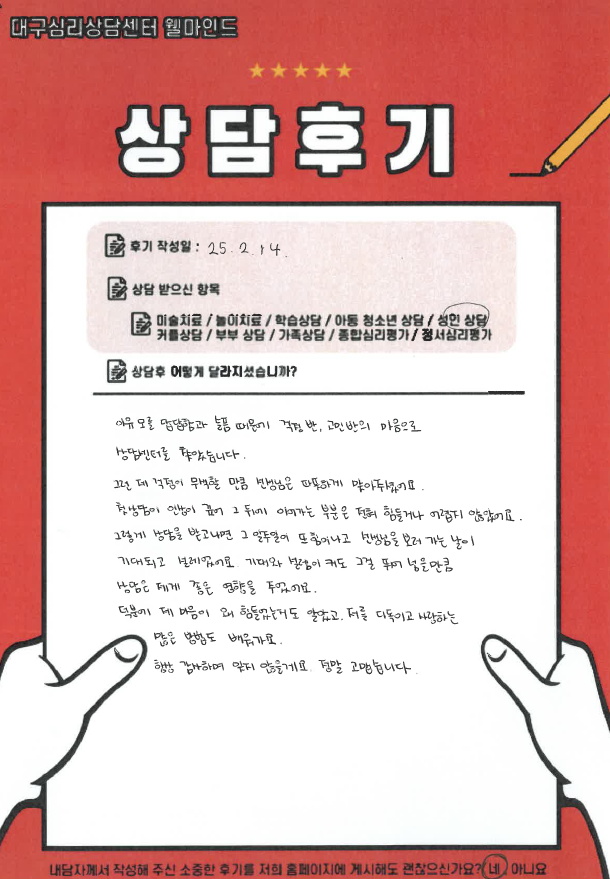 대구심리상담센터 웰마인드
상담후기
후기 작성일 : 25. 2. 14.
상담 받으신 항목
미술치료 / 놀이치료 / 학습상담 / 아동 청소년 상담 / 성인 상담
커플상담 / 부부 상담 / 가족상담 / 종합심리평가 / 정서심리평가
상담후 어떻게 달라지셨습니까?
이유 모를 답답함과 슬픔 때문에 걱정 반, 고민 반의 마음으로
상담센터를 찾았습니다.
그런 제 걱정이 무색할 만큼 선생님은 따뜻하게 맞아주셨어요.
첫 상담이 인상이 깊어 그 뒤에 이어가는 부분은 전혀 힘들거나 어렵지 않았어요.
그렇게 상담을 받고나면 그 일주일이 또 힘이나고 선생님을 보러 가는 날이
기대되고 설레었어요. 기대와 설렘이 커도 그걸 뛰어 넘을만큼
상담은 제게 좋은 영향을 주었어요.
덕분에 제 마음이 왜 힘들었는지도 알았고, 저를 다독이고 사랑하는
많은 방법도 배워가요.
항상 감사하며 잊지 않을게요. 정말 고맙습니다.
내담자께서 작성해 주신 소중한 후기를 저희 홈페이지에 게시해도 괜찮으신가요? 네 아니요